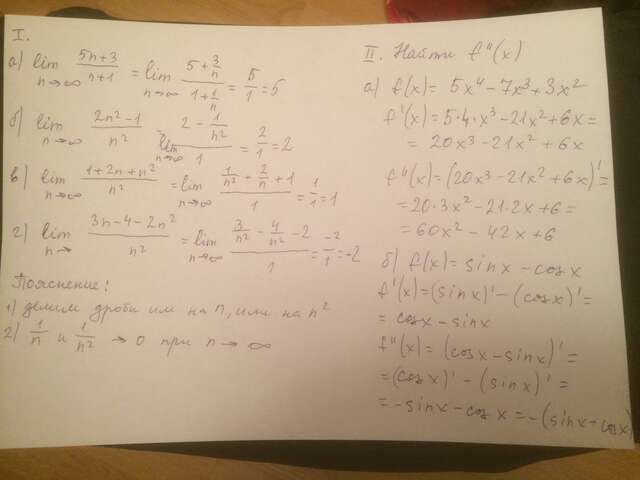 I.
а) lim n→∞ (5n+3)/(n+1) = lim n→∞ (5+3/n)/(1+1/n) = 5/1 = 5
б) lim n→∞ (2n²-1)/n² = lim n→∞ (2-1/n²)/1 = 2/1 = 2
в) lim n→∞ (1+2n+n²)/n² = lim n→∞ (1/n²+2/n+1)/1 = 1/1 = 1
г) lim n→ (3n-4-2n²)/n² = lim n→∞ (3/n²-4/n²-2)/1 = -2/1 = -2
Пояснение:
1) делим дроби или на n, или на n²
2) 1/n и 1/n² → 0 при n → ∞
II. Найти f''(x)
а) f(x) = 5x⁴-7x³+3x²
f'(x) = 5·4x³-21x²+6x =
= 20x³-21x²+6x
f''(x) = (20x³-21x²+6x)' =
= 20·3x²-21·2x+6 =
= 60x²-42x+6
б) f(x) = sin x - cos x
f'(x) = (sin x)' - (cos x)' =
= cos x - sin x
f''(x) = (cos x - sin x)' =
= (cos x)' - (sin x)' =
= -sin x - cos x = -(sin x + cos x)